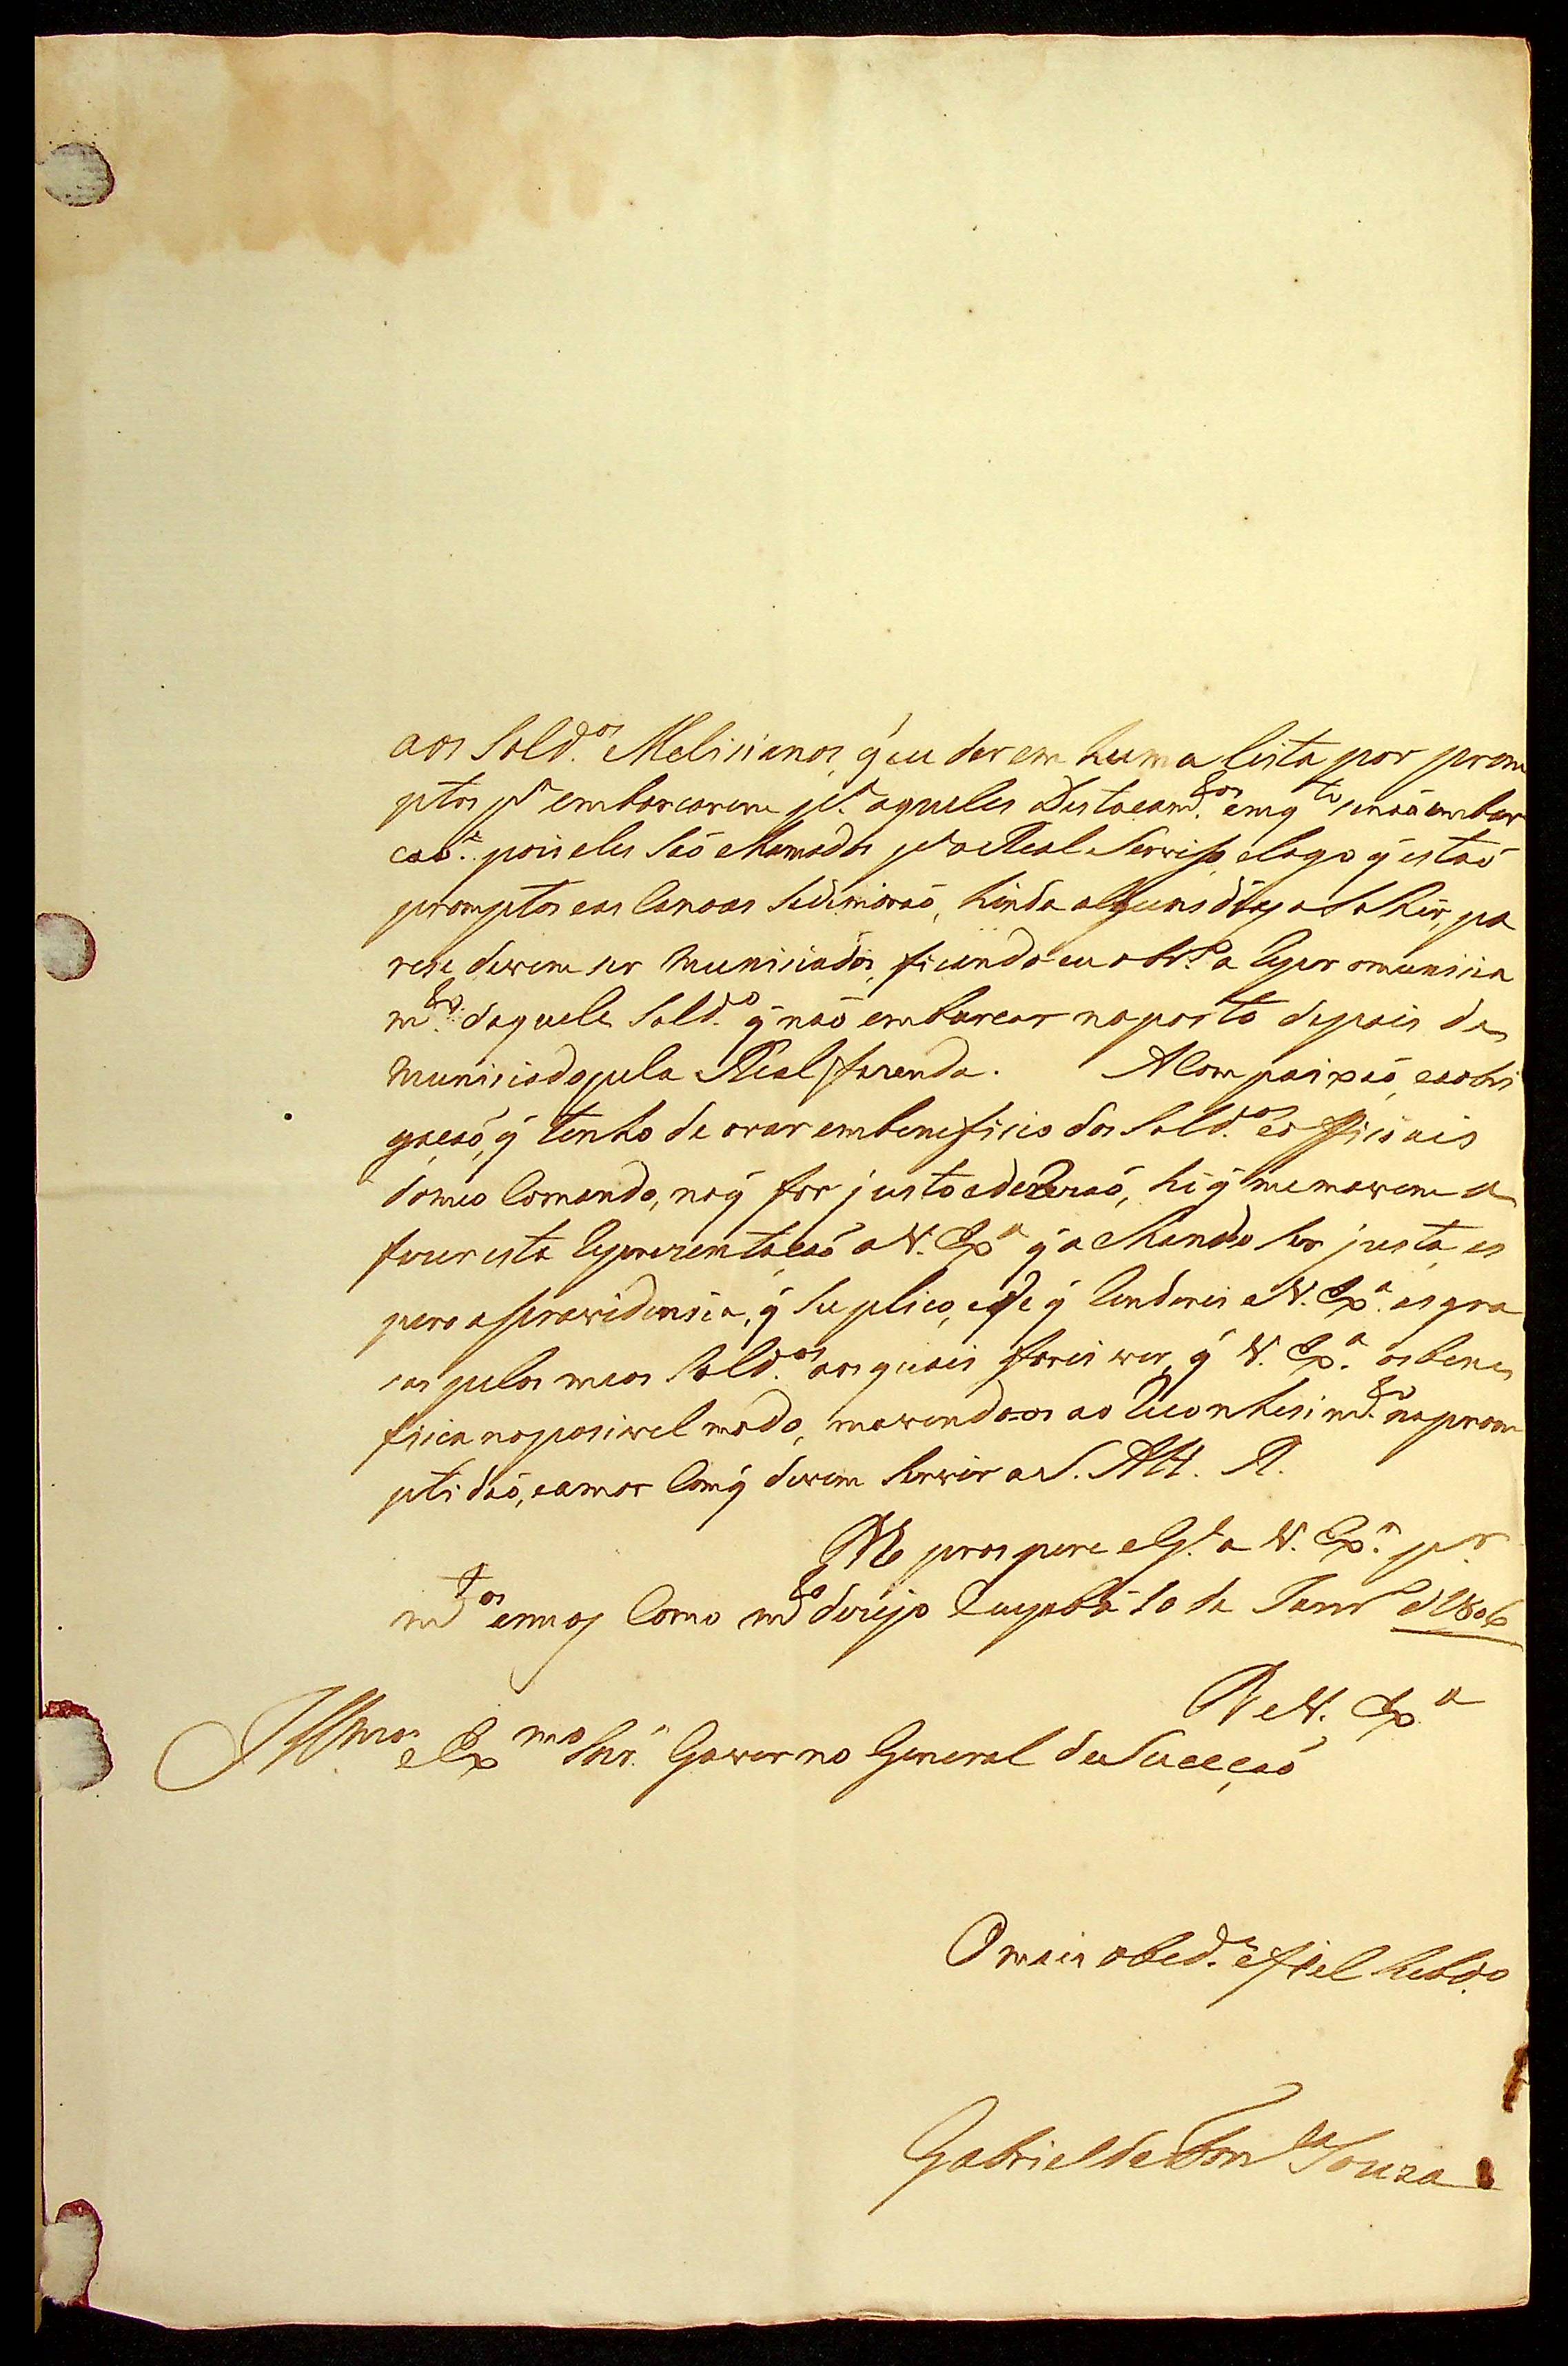 aos Sold.os Melisianos, q̃ eu der em huma lista por prom
ptos p.a embarcarem p.a aqueles Destacam.tos emq.to senaõ embar
caõ. pois eles Saõ chamados p.a o Real Serviso, elogo q̃ estaõ
promptos eas Canoas sedemoraõ, hinda alguns dias aSahir, pa
rese, devem ser munisiados, ficando eu obr.do a repor omunisia
m.to daquele Sold.o q̃ naõ embarcar noporto depois de
munisiado pela Real fazenda. A Compaixaõ, eaobri
gaçaõ, q̃ tenho de orar embeneficio dos Sold.os e officiais
domeo Comando, noq̃ for justo ederezaõ, hé q̃ memovem a
fazer esta representaçaõ a V. Ex.a q̃ achando ser justa, es
pero aprovidensia, q̃ Suplico, e de q̃ renderei a V. Ex.a as gra
sas pelos meos Sold.os aos quais farei ver, q̃ V. Ex.a os bene
ficia noposivel modo, movendo-os ao reconhesim.to naprom
ptidaõ, eamor Comq̃ devem Servir a S. Alt. R.
D.s prospere eg.e a V. Ex.a p.r
m.tos annos Como m.to dezejo Cuyabá 10 de Janr.o d1806
De V. Ex.a
Ill.mos e Ex.mos Snr.s Governo General deSucçaõ
O mais obed.e efiel Subd.o
Gabriel da Fon.ca Souza